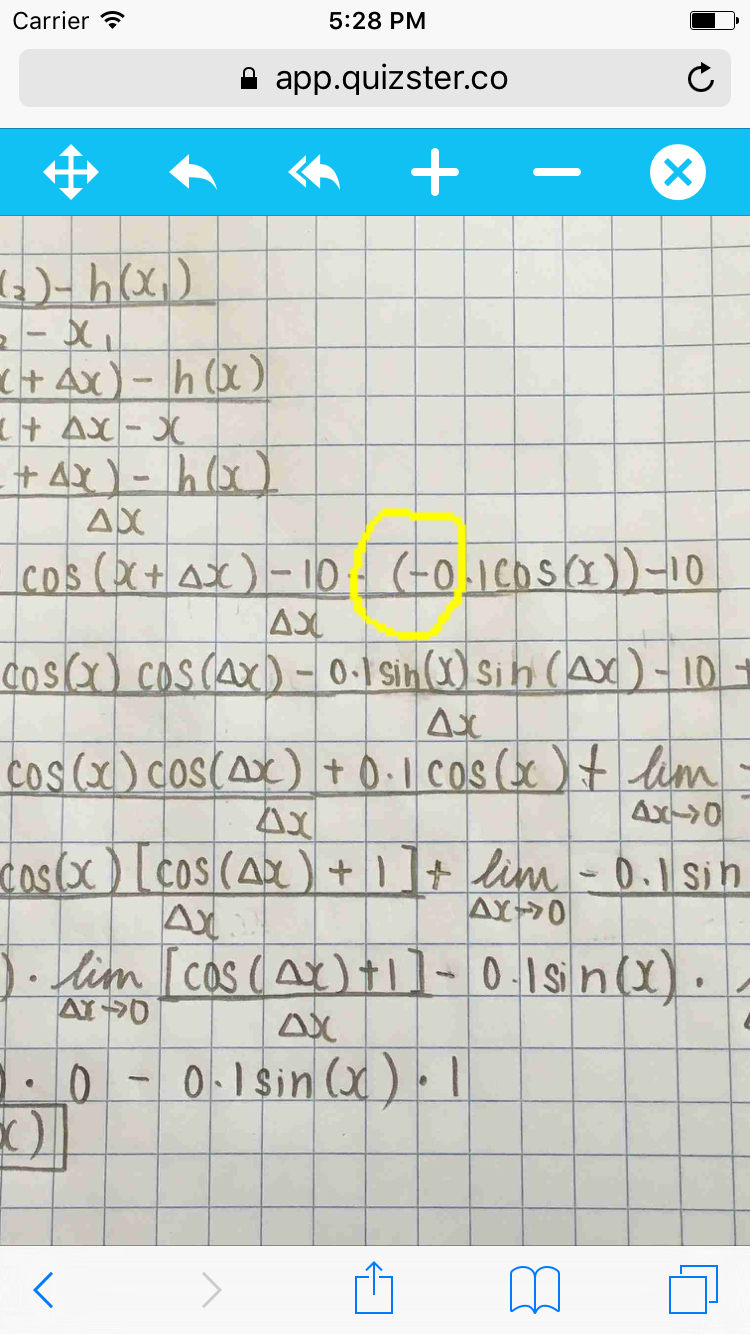 Carrier 5:28 PM
app.quizster.co
(₂) - h(x₁)
₂ - x₁
x + Δx) - h(x)
x + Δx - x
+ Δx) - h(x)
Δx
cos(x + Δx) - 10 - (-0.1cos(x)) - 10
Δx
cos(x) cos(Δx) - 0.1sin(x) sin(Δx) - 10 +
Δx
cos(x) cos(Δx) + 0.1 cos(x) + lim -
Δx Δx→0
cos(x) [cos(Δx) + 1] + lim - 0.1 sin
Δx Δx→0
) · lim [cos(Δx) + 1] - 0.1sin(x) ·
Δx→0 Δx
) · 0 - 0.1sin(x) · 1
x)